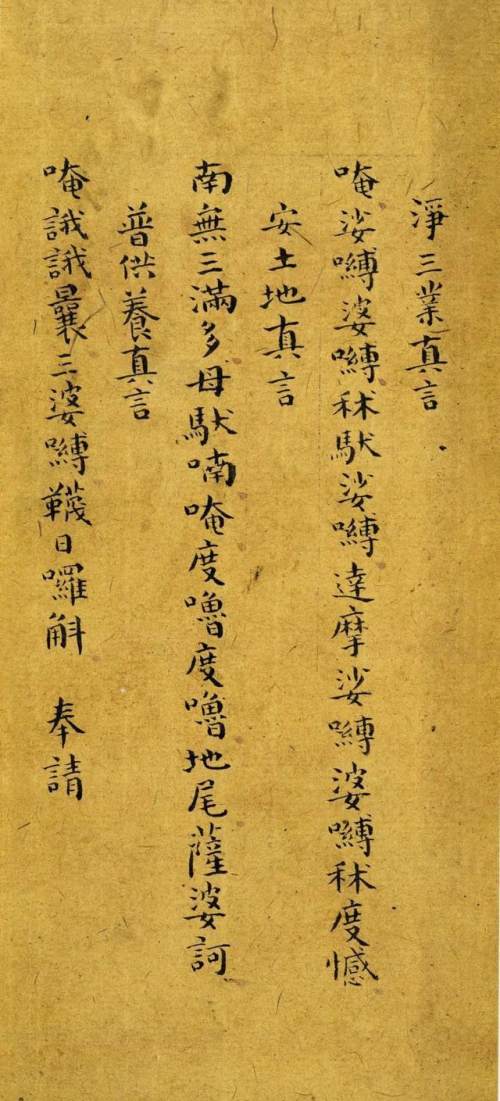 淨三業真言
唵娑嚩婆嚩秫馱娑嚩達摩娑嚩婆嚩秫度憾
安土地真言
南無三滿多母馱喃唵度嚕度嚕地尾薩婆訶
普供養真言
唵誐誐曩三婆嚩韈日囉斛　奉請